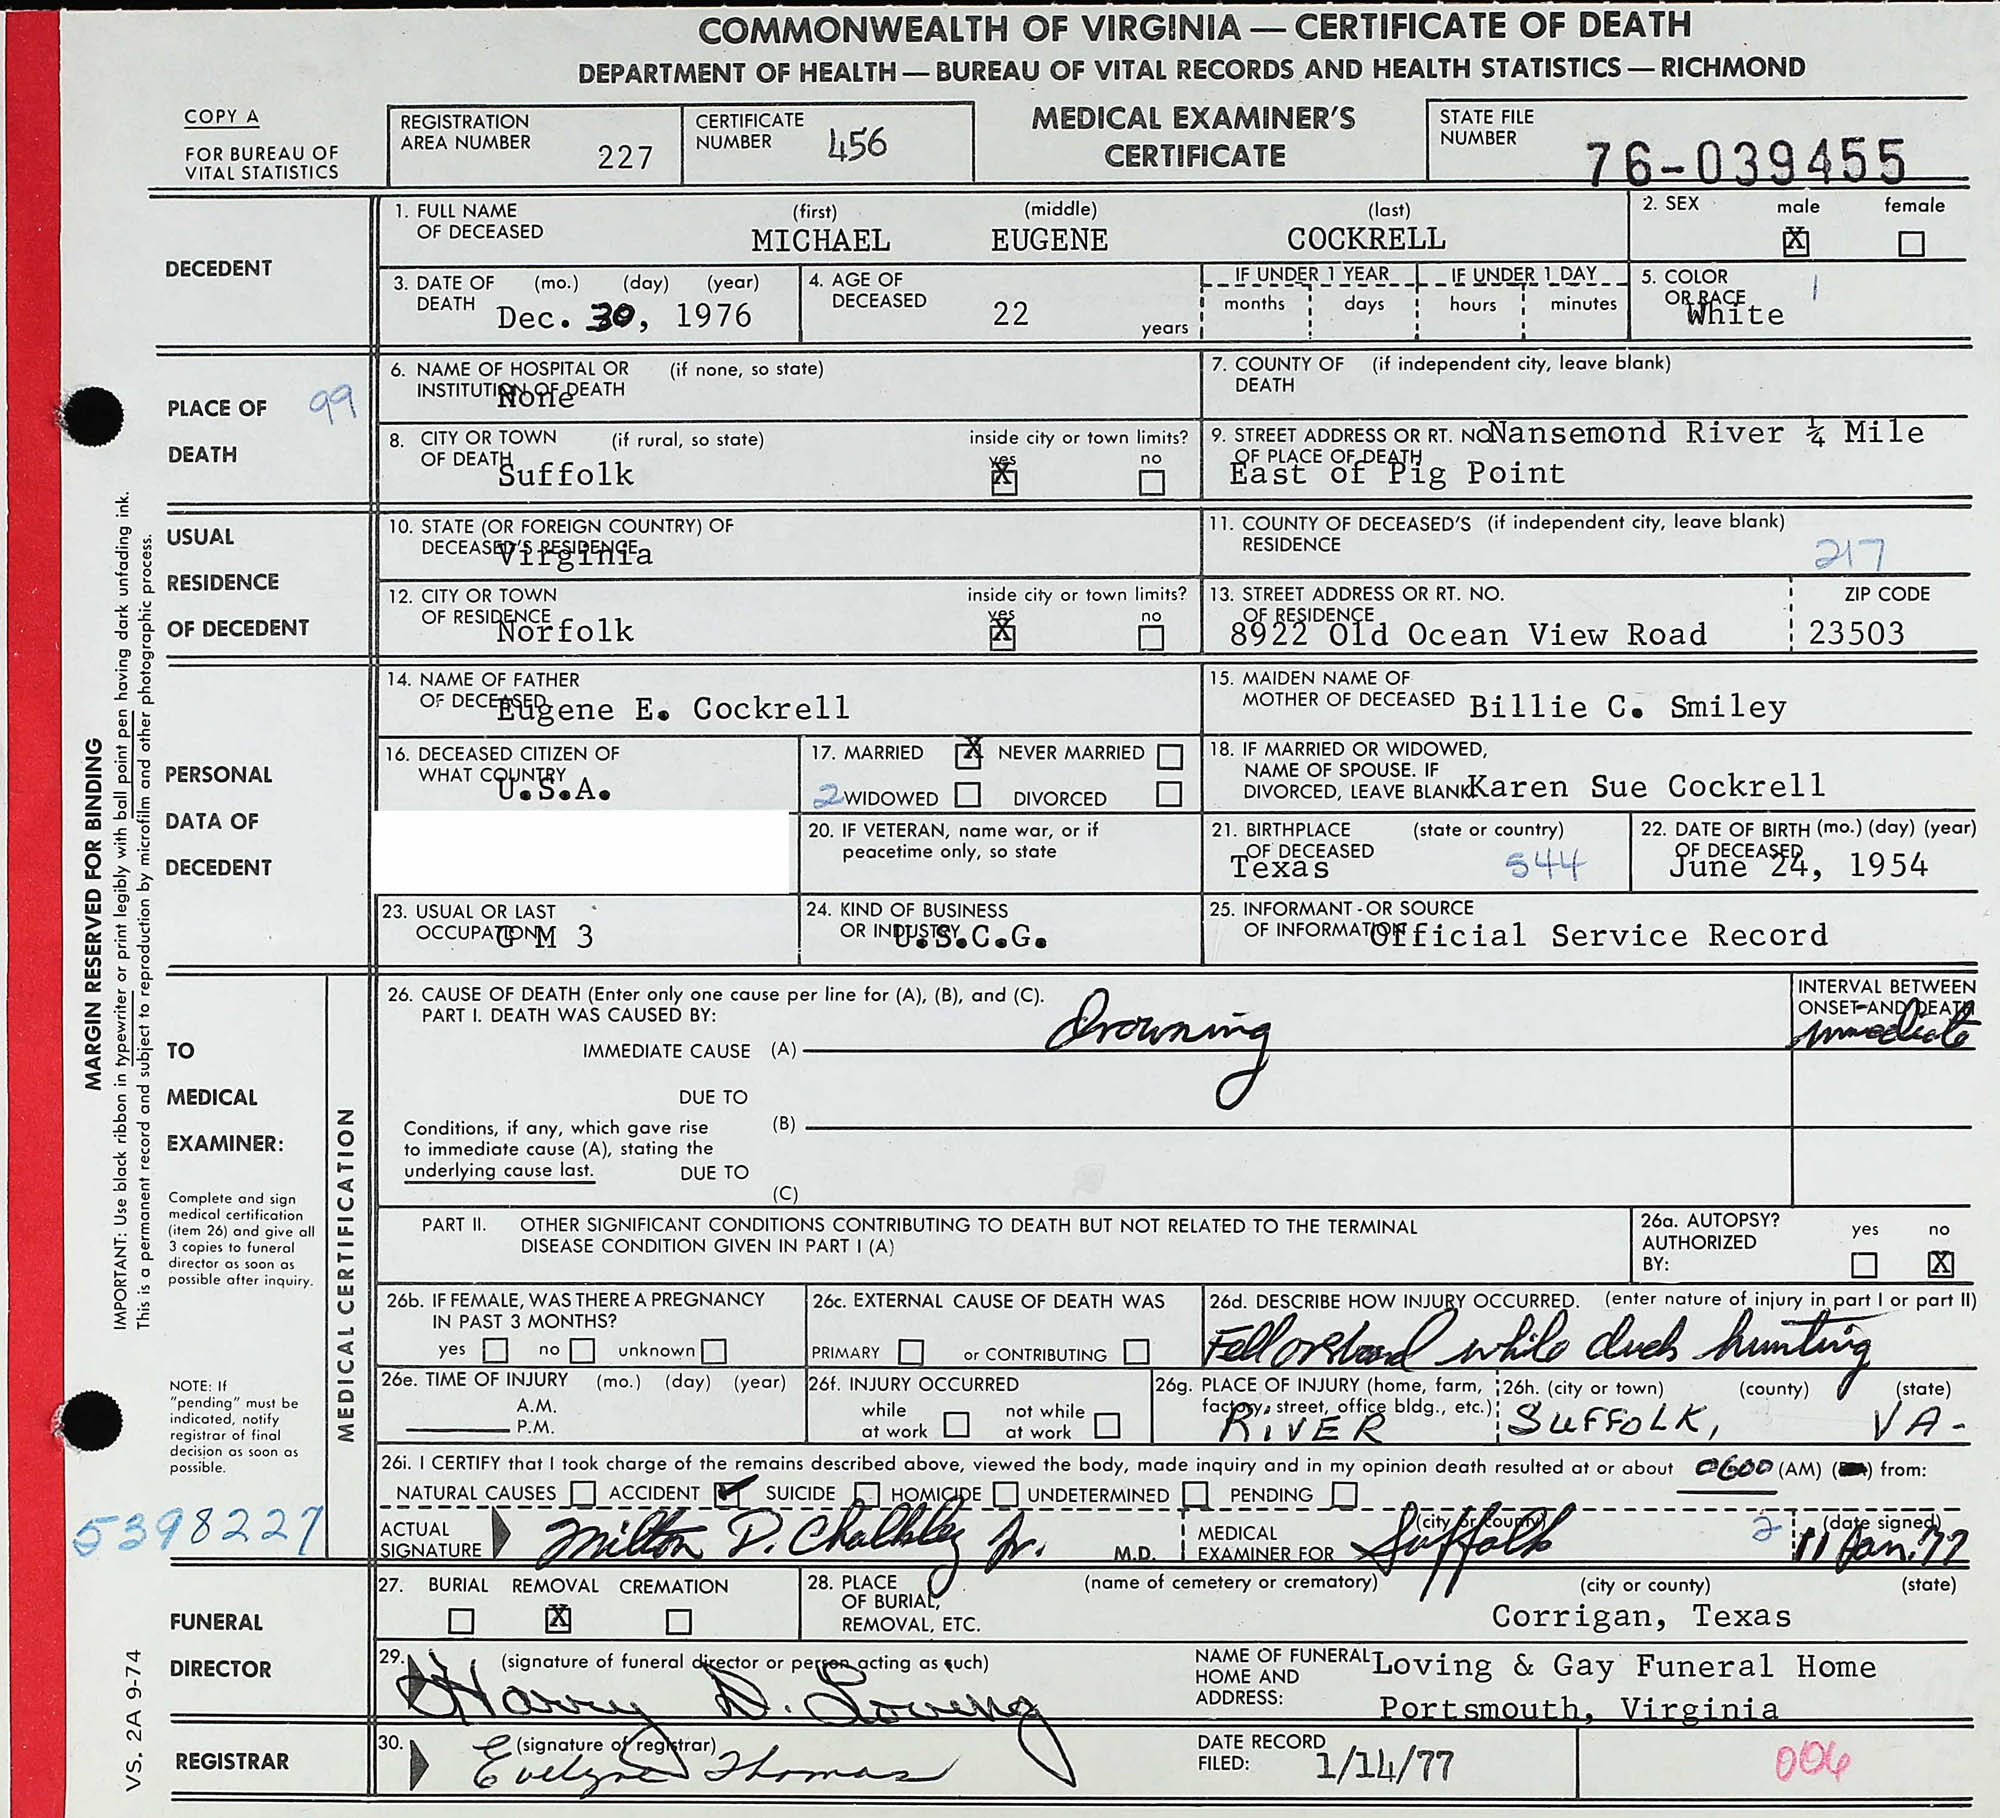 COMMONWEALTH OF VIRGINIA — CERTIFICATE OF DEATH
DEPARTMENT OF HEALTH — BUREAU OF VITAL RECORDS AND HEALTH STATISTICS — RICHMOND
COPY A
FOR BUREAU OF
VITAL STATISTICS
REGISTRATION
AREA NUMBER 227
CERTIFICATE
NUMBER 456
MEDICAL EXAMINER'S
CERTIFICATE
STATE FILE
NUMBER 76-039455
DECEDENT
1. FULL NAME (first) (middle) (last)
OF DECEASED MICHAEL EUGENE COCKRELL
2. SEX male female
X
3. DATE OF (mo.) (day) (year)
DEATH Dec. 30, 1976
4. AGE OF
DECEASED 22 years
IF UNDER 1 YEAR IF UNDER 1 DAY
months days hours minutes
5. COLOR 1
OR RACE
White
PLACE OF 99
DEATH
6. NAME OF HOSPITAL OR (if none, so state)
INSTITUTION OF DEATH
None
7. COUNTY OF (if independent city, leave blank)
DEATH
8. CITY OR TOWN (if rural, so state) inside city or town limits?
OF DEATH yes no
Suffolk X
9. STREET ADDRESS OR RT. NO Nansemond River ¼ Mile
OF PLACE OF DEATH
East of Pig Point
USUAL
RESIDENCE
OF DECEDENT
10. STATE (OR FOREIGN COUNTRY) OF
DECEASED'S RESIDENCE
Virginia
11. COUNTY OF DECEASED'S (if independent city, leave blank)
RESIDENCE 217
12. CITY OR TOWN inside city or town limits?
OF RESIDENCE yes no
Norfolk X
13. STREET ADDRESS OR RT. NO. ZIP CODE
OF RESIDENCE
8922 Old Ocean View Road 23503
PERSONAL
DATA OF
DECEDENT
14. NAME OF FATHER
OF DECEASED
Eugene E. Cockrell
15. MAIDEN NAME OF
MOTHER OF DECEASED Billie C. Smiley
16. DECEASED CITIZEN OF
WHAT COUNTRY
U.S.A.
17. MARRIED X NEVER MARRIED
2 WIDOWED DIVORCED
18. IF MARRIED OR WIDOWED,
NAME OF SPOUSE. IF
DIVORCED, LEAVE BLANK Karen Sue Cockrell
20. IF VETERAN, name war, or if
peacetime only, so state
21. BIRTHPLACE (state or country)
OF DECEASED
Texas 544
22. DATE OF BIRTH (mo.) (day) (year)
OF DECEASED
June 24, 1954
23. USUAL OR LAST
OCCUPATION
G M 3
24. KIND OF BUSINESS
OR INDUSTRY
U.S.C.G.
25. INFORMANT - OR SOURCE
OF INFORMATION
Official Service Record
TO
MEDICAL
EXAMINER:
Complete and sign
medical certification
(item 26) and give all
3 copies to funeral
director as soon as
possible after inquiry.
NOTE: If
"pending" must be
indicated, notify
registrar of final
decision as soon as
possible.
5398227
MEDICAL CERTIFICATION
26. CAUSE OF DEATH (Enter only one cause per line for (A), (B), and (C).
PART I. DEATH WAS CAUSED BY:
IMMEDIATE CAUSE (A) Drowning
INTERVAL BETWEEN
ONSET AND DEATH
immediate
DUE TO
(B)
Conditions, if any, which gave rise
to immediate cause (A), stating the
underlying cause last. DUE TO
(C)
PART II. OTHER SIGNIFICANT CONDITIONS CONTRIBUTING TO DEATH BUT NOT RELATED TO THE TERMINAL
DISEASE CONDITION GIVEN IN PART I (A)
26a. AUTOPSY? yes no
AUTHORIZED
BY: X
26b. IF FEMALE, WAS THERE A PREGNANCY
IN PAST 3 MONTHS?
yes no unknown
26c. EXTERNAL CAUSE OF DEATH WAS
PRIMARY or CONTRIBUTING
26d. DESCRIBE HOW INJURY OCCURRED. (enter nature of injury in part I or part II)
Fell overboard while duck hunting
26e. TIME OF INJURY (mo.) (day) (year)
A.M.
P.M.
26f. INJURY OCCURRED
while not while
at work at work
26g. PLACE OF INJURY (home, farm,
factory, street, office bldg., etc.)
RIVER
26h. (city or town) (county) (state)
SUFFOLK, VA-
26i. I CERTIFY that I took charge of the remains described above, viewed the body, made inquiry and in my opinion death resulted at or about 0600 (AM) from:
NATURAL CAUSES ACCIDENT ✓ SUICIDE HOMICIDE UNDETERMINED PENDING
ACTUAL
SIGNATURE Milton D. Chalkley Jr. M.D.
MEDICAL (city or county)
EXAMINER FOR Suffolk
2 (date signed)
11 Jan. 77
FUNERAL
DIRECTOR
27. BURIAL REMOVAL CREMATION
X
28. PLACE (name of cemetery or crematory) (city or county) (state)
OF BURIAL,
REMOVAL, ETC. Corrigan, Texas
29. (signature of funeral director or person acting as such)
Harry D. Loving
NAME OF FUNERAL Loving & Gay Funeral Home
HOME AND
ADDRESS: Portsmouth, Virginia
REGISTRAR
30. (signature of registrar)
Evelyne Thomas
DATE RECORD
FILED: 1/14/77
006
MARGIN RESERVED FOR BINDING
IMPORTANT: Use black ribbon in typewriter or print legibly with ball point pen having dark unfading ink.
This is a permanent record and subject to reproduction by microfilm and other photographic process.
VS. 2A 9-74